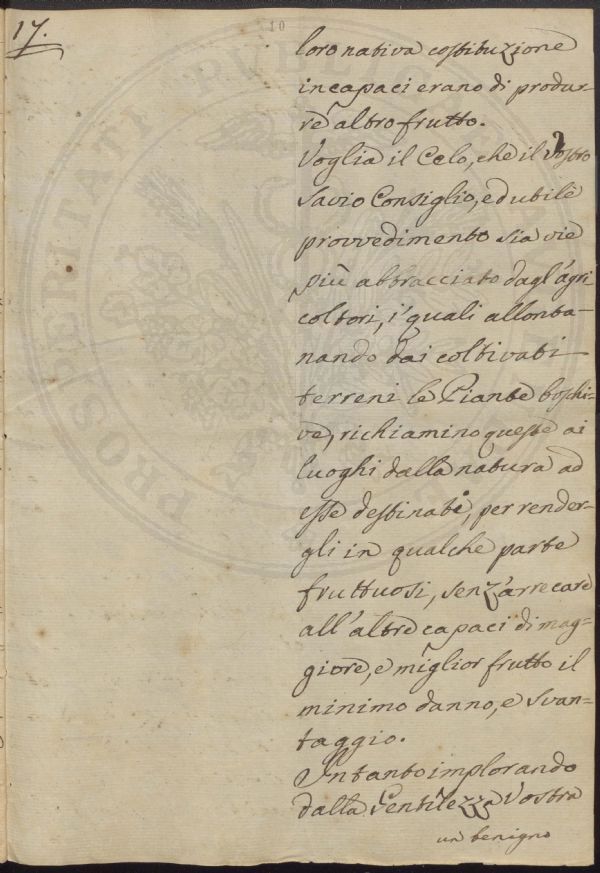 17.
10
loro nativa costituzione
incapaci erano di produr-
re altro frutto.
Voglia il Celo, che il Vostro
Savio Consiglio, ed utile
provvedimento sia vie
più abbracciato dagl'agri
coltori, i quali allonta-
nando dai coltivati
terreni le Piante boschi-
ve, richiamino queste ai
luoghi dalla natura ad
esse destinati, per render-
gli in qualche parte
fruttuosi, senz'arrecare
all'altre capaci di mag-
giore, e miglior frutto il
minimo danno, e svan-
taggio.
Intanto implorando
dalla Gentilezza Vostra
un benigno